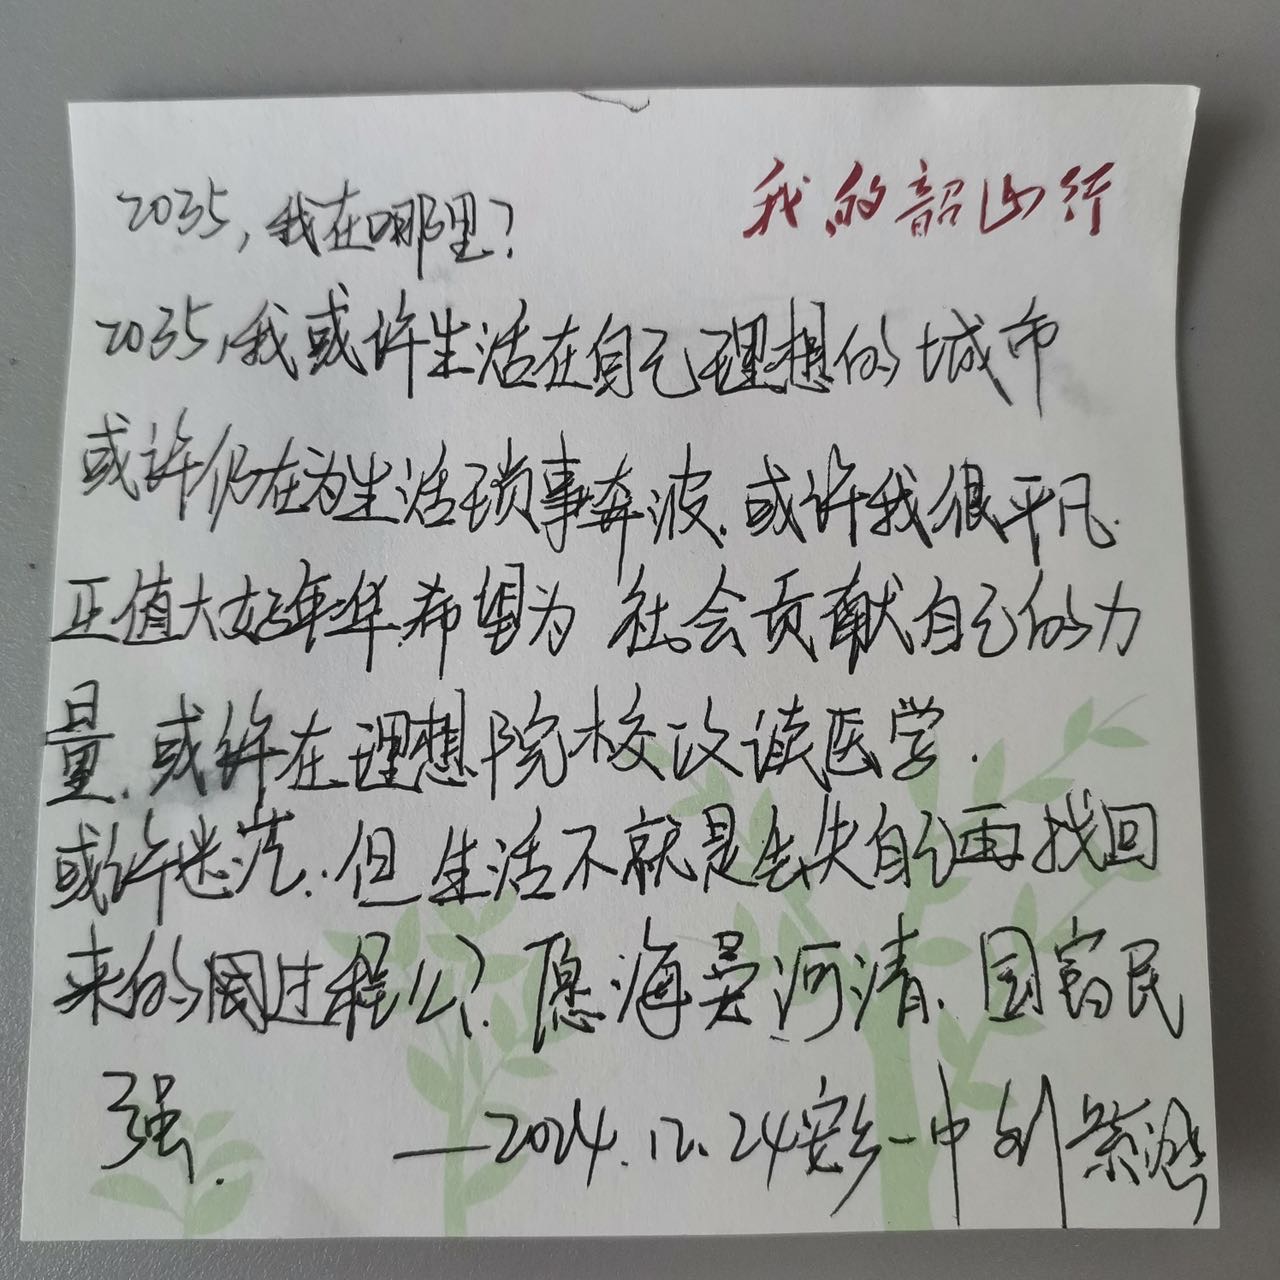 我的韶山行
2035，我在哪里？
2035，我或许生活在自己理想的城市
或许仍在为生活琐事奔波．或许我很平凡．
正值大好年华．希望为 社会贡献自己的力
量．或许在理想院校攻读医学．
或许迷茫．．但生活不就是丢失自己再找回
来的过程么？．愿海晏河清．国富民
强．
——2024.12.24安乡一中 刘